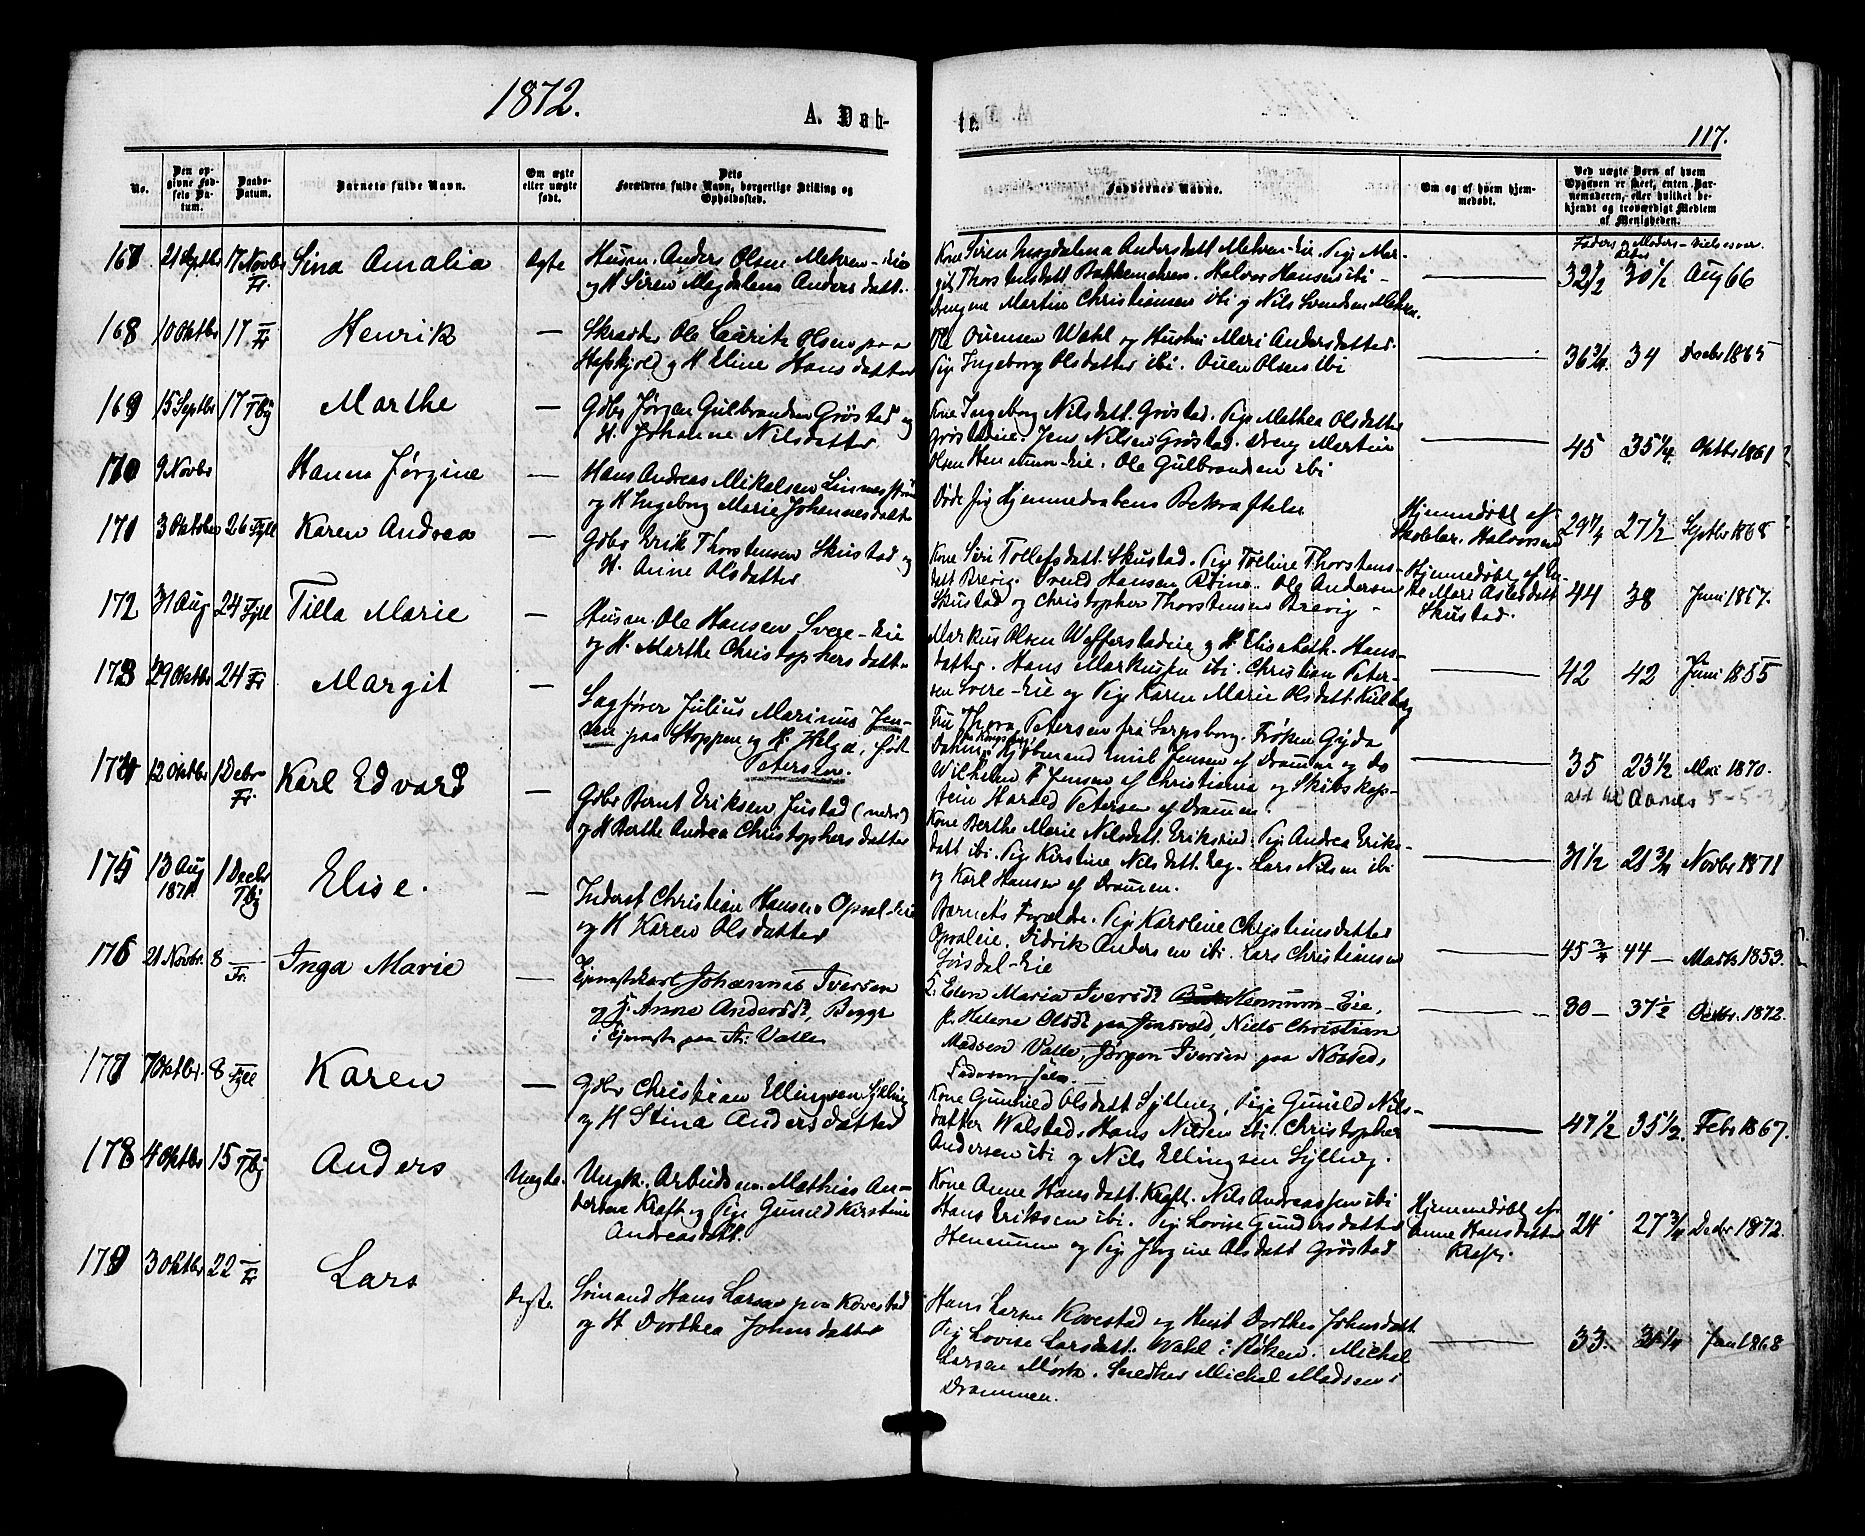 1872.
A. Dåb-
te.
117.
No.
Den opgivne Fødsels Datum.
Daabs-Datum.
Barnets fulde Navn.
Om ægte eller uægte født.
Dets Forældres fulde Navn, borgerlige Stilling og Opholdssted.
Faddernes Navne.
Om og af hvem hjemmedøbt.
Ved uægte Børn af hvem Opgaven er skeet, enten Barnemoderen, eller hvilket bekjendt og troværdigt Medlem af Menigheden.
Faders og Moders
167 21 Septbr 17 Novbr Fr. Sina Amalia Ægte
Husm. Anders Olsen Mehren-Eie
og H Siren Magdalena Andersdatt.
Kone Siren Magdalena Andersdatt Mehren-Eie. Pige Mar-
git Thorstensdatt Bakkemehren. Halvor Hansen ibi -
Drengene Martin Christiansen ibi og Nils Svendsen Mehren.
32 1/2 30 1/2 Aug 66
168 10 Oktbr 17 Fr Henrik —
Skrædder Ole Lauritz Olsen paa
og H Eline Hansdatter
Ole Ouensen Wahl og Hustru Mari Andersdatter.
Pige Ingeborg Olsdatter ibi. Ouen Olsen ibi
36 3/4 34 Decbr 1865
169 15 Septbr 17 Marthe —
Gdbr Jørgen Gulbrandsen Grøstad og
H. Johanne Nilsdatter.
Kone Ingeborg Nilsdatt. Grøstad. Pige Mathea Olsdatter
Grøstadeie. Jens Nilsen Grøstad. Dreng Martin
Olsen Henumn-Eie. Ole Gulbrandsen ibi
45 35 1/4 Oktbr 1861
170 9 Novbr Hanna Jørgine —
Hans Andreas Mikalsen Linnes
og H Ingeborg Marie Johannesdatter
Døde før Hjemmedaabens Bekræftelse
Hjemmedøbt af
Skolelær. Halvorsen
29 27 1/2 Septbr 1868
171 3 Oktober 26 Karen Andrea —
Gdbr Erik Thorstensen Skustad og
H. Anne Olsdatter
Kone Siri Tollefsdatt. Skustad. Pige Torline Thorstens-
datt Brevig. Svend Hansen Røine. Ole Andersen
Skustad og Christopher Thorstensen Brevig -
Hjemmedøbt af
Mari Aslesdatt
Skustad.
44 38 Juni 1867.
172 31 Aug 24 Tilla Marie —
Husm. Ole Hansen Svere-Eie
og H. Marthe Christophersdatt.
Markus Olsen Wefferstadeie og H. Elisabeth Hans-
datter. Hans Markusen ibi. Christian Peter-
sen Svere-Eie og Pige Karen Marie Olsdatt
42 42 Juni 1855
173 29 Oktbr 24 Fr Margit —
Sagfører Julius Marinus Jen-
sen paa Stoppen og H. Helga, født
Petersen.
Fru Thora Petersen fra Sarpsborg. Frøken Gyda
Kjøbmand Emil Jensen af Dramm og do
Wilhelm F Jensen af Christiania og Skibskap-
tein Harald Petersen af Drammen.
35 23 1/2 Mai 1870.
5-5-3
174 12 Oktbr 1 Decbr Fr. Karl Edvard —
Gdbr Bernt Eriksen Justad (nedre)
og H Berthe Andrea Christophersdatter
Kone Berthe Marie Nilsdatt Eriksrud. Pige Andrea Eriks-
datt ibi. Pige Kirstine Nilsdatt Eeg. Lars Nilsen ibi
og Karl Hansen af Drammen.
31 1/2 21 3/4 Novbr 1871
175 13 Aug 1871 1 Decbr Elise. —
Inderst Christian Hansen Opsal-Eie
og H Karen Olsdatter
Barnets Forældre. Pige Karoline Christiansdatter
Opsaleie. Didrik Andersen ibi. Lars Christiansen
Gjøsdal-Eie
45 3/4 44 — Marts 1853.
176 21 Novbr. 8 Fr. Inga Marie —
Tjenestekarl Johannes Iversen
og P. Anne Andersdt, Begge
i Tjeneste paa Valle
Maria Iversdt Henumn-Eie,
P. Helene Olsdt paa Jonsvold, Niels Christian
Madsen Valle, Jørgen Iversen paa Nøsted,
Faderen selv.
30 — 31 1/2 Octbr. 1872.
177 7 Oktbr. 8 Karen —
Gdbr Christian Ellingsen Sylling
og H Stina Andersdatter
Kone Gunild Olsdatt Sylling, Pige Gunild Nils-
datter Walstad, Hans Nilsen ibi. Christopher
Andersen ibi og Nils Ellingsen Sylling.
47 1/2 35 1/2. Febr 1867.
178 4 Oktbr 15 Anders Uægte.
Ungk. Arbeidsm. Mathias An-
dersen Kraft og Pige Gunild Kirstine
Andreasdatt.
Kone Anne Hansdatt. Kraft. Nils Andreassen ibi
Hans Eriksen ibi. Pige Lovise Gundersdatter
Henumn og Pige Jørgine Olsdatt Grøstad
Hjemmedøbt af
Anne Hansdatter
Kraft.
24 27 3/4 Decbr 1872.
179 3 Oktbr 22 Fr Lars Ægte.
Sømand Hans Larsen paa Kovestad
og H Dorthea Johnsdatter
Hans Larsen Kovestad og Hust Dorthea Johnsdatt
Pige Lovise Larsdatt. Wahl i Røken. Michal
Larsen Mørk. Snedker Michal Madsen i
Drammen.
33. 31 1/4 Jan 1868